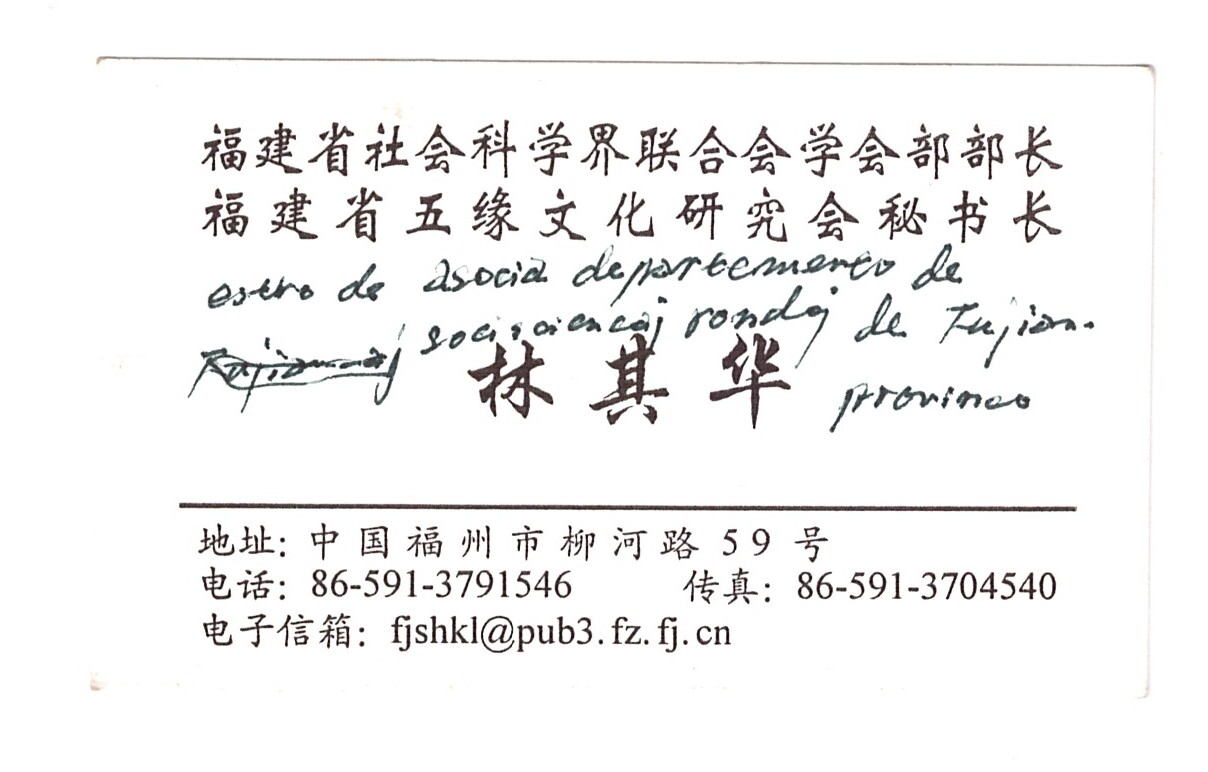 福建省社会科学界联合会学会部部长
福建省五缘文化研究会秘书长
estro de asocia departemento de
socisciencaj rondoj de Fujian-
provinco
林其华
地址: 中国福州市柳河路 59 号
电话: 86-591-3791546 传真: 86-591-3704540
电子信箱: fjshkl@pub3.fz.fj.cn